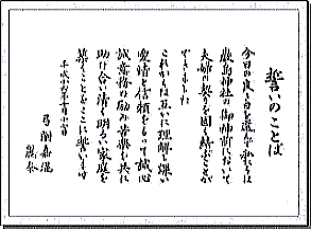 誓いのことば
今日の良き日を選んで私たちは
厳島神社の御神前において
夫婦の契りを固く結ぶことが
できました
これからは互いに理解を深い
愛情と信頼をもって誠心
誠意務め励み苦楽を共に
助け合い清く明るい家庭を
築くことをここに誓います
平成